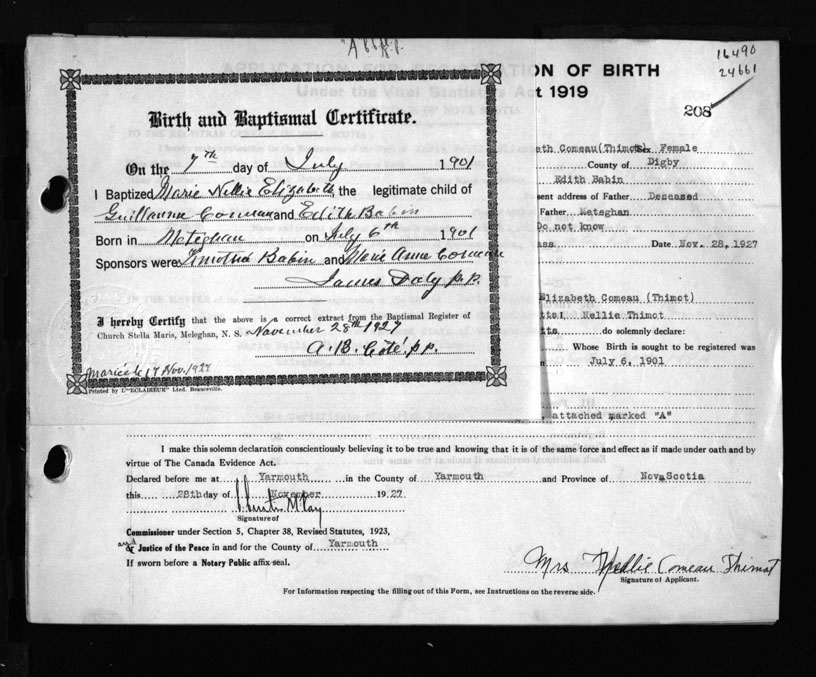 "A"
16490
24661
208
ON OF BIRTH
t 1919
Birth and Baptismal Certificate.
On the 7th day of July 1901
I Baptized Marie Nellie Elizabeth the legitimate child of
Guillaume Comeau and Edith Babin
Born in Meteghan on July 6th 1901
Sponsors were Timothé Babin and Marie Anne Comeau
James Daly p.p.
I hereby Certify that the above is a correct extract from the Baptismal Register of
Church Stella Maris, Meteghan, N. S. November 28th 1927
A. B. Coté p.p.
17 Nov. 1927
Printed by L'"ECLAIREUR" Ltd. Beauceville.
eth Comeau(Thimot) Sex Female
County of Digby
Edith Babin
sent address of Father Deceased
Father Meteghan
Do not know
ass. Date Nov. 28, 1927
Elizabeth Comeau (Thimot)
I, Nellie Thimot
do solemnly declare:
Whose Birth is sought to be registered was
July 6, 1901
attached marked "A"
I make this solemn declaration conscientiously believing it to be true and knowing that it is of the same force and effect as if made under oath and by
virtue of The Canada Evidence Act.
Declared before me at Yarmouth in the County of Yarmouth and Province of Nova Scotia
this 28th day of November 1927
Signature of
Commissioner under Section 5, Chapter 38, Revised Statutes, 1923,
and
or Justice of the Peace in and for the County of Yarmouth
If sworn before a Notary Public affix seal.
Mrs Nellie Comeau Thimot
Signature of Applicant.
For Information respecting the filling out of this Form, see Instructions on the reverse side.